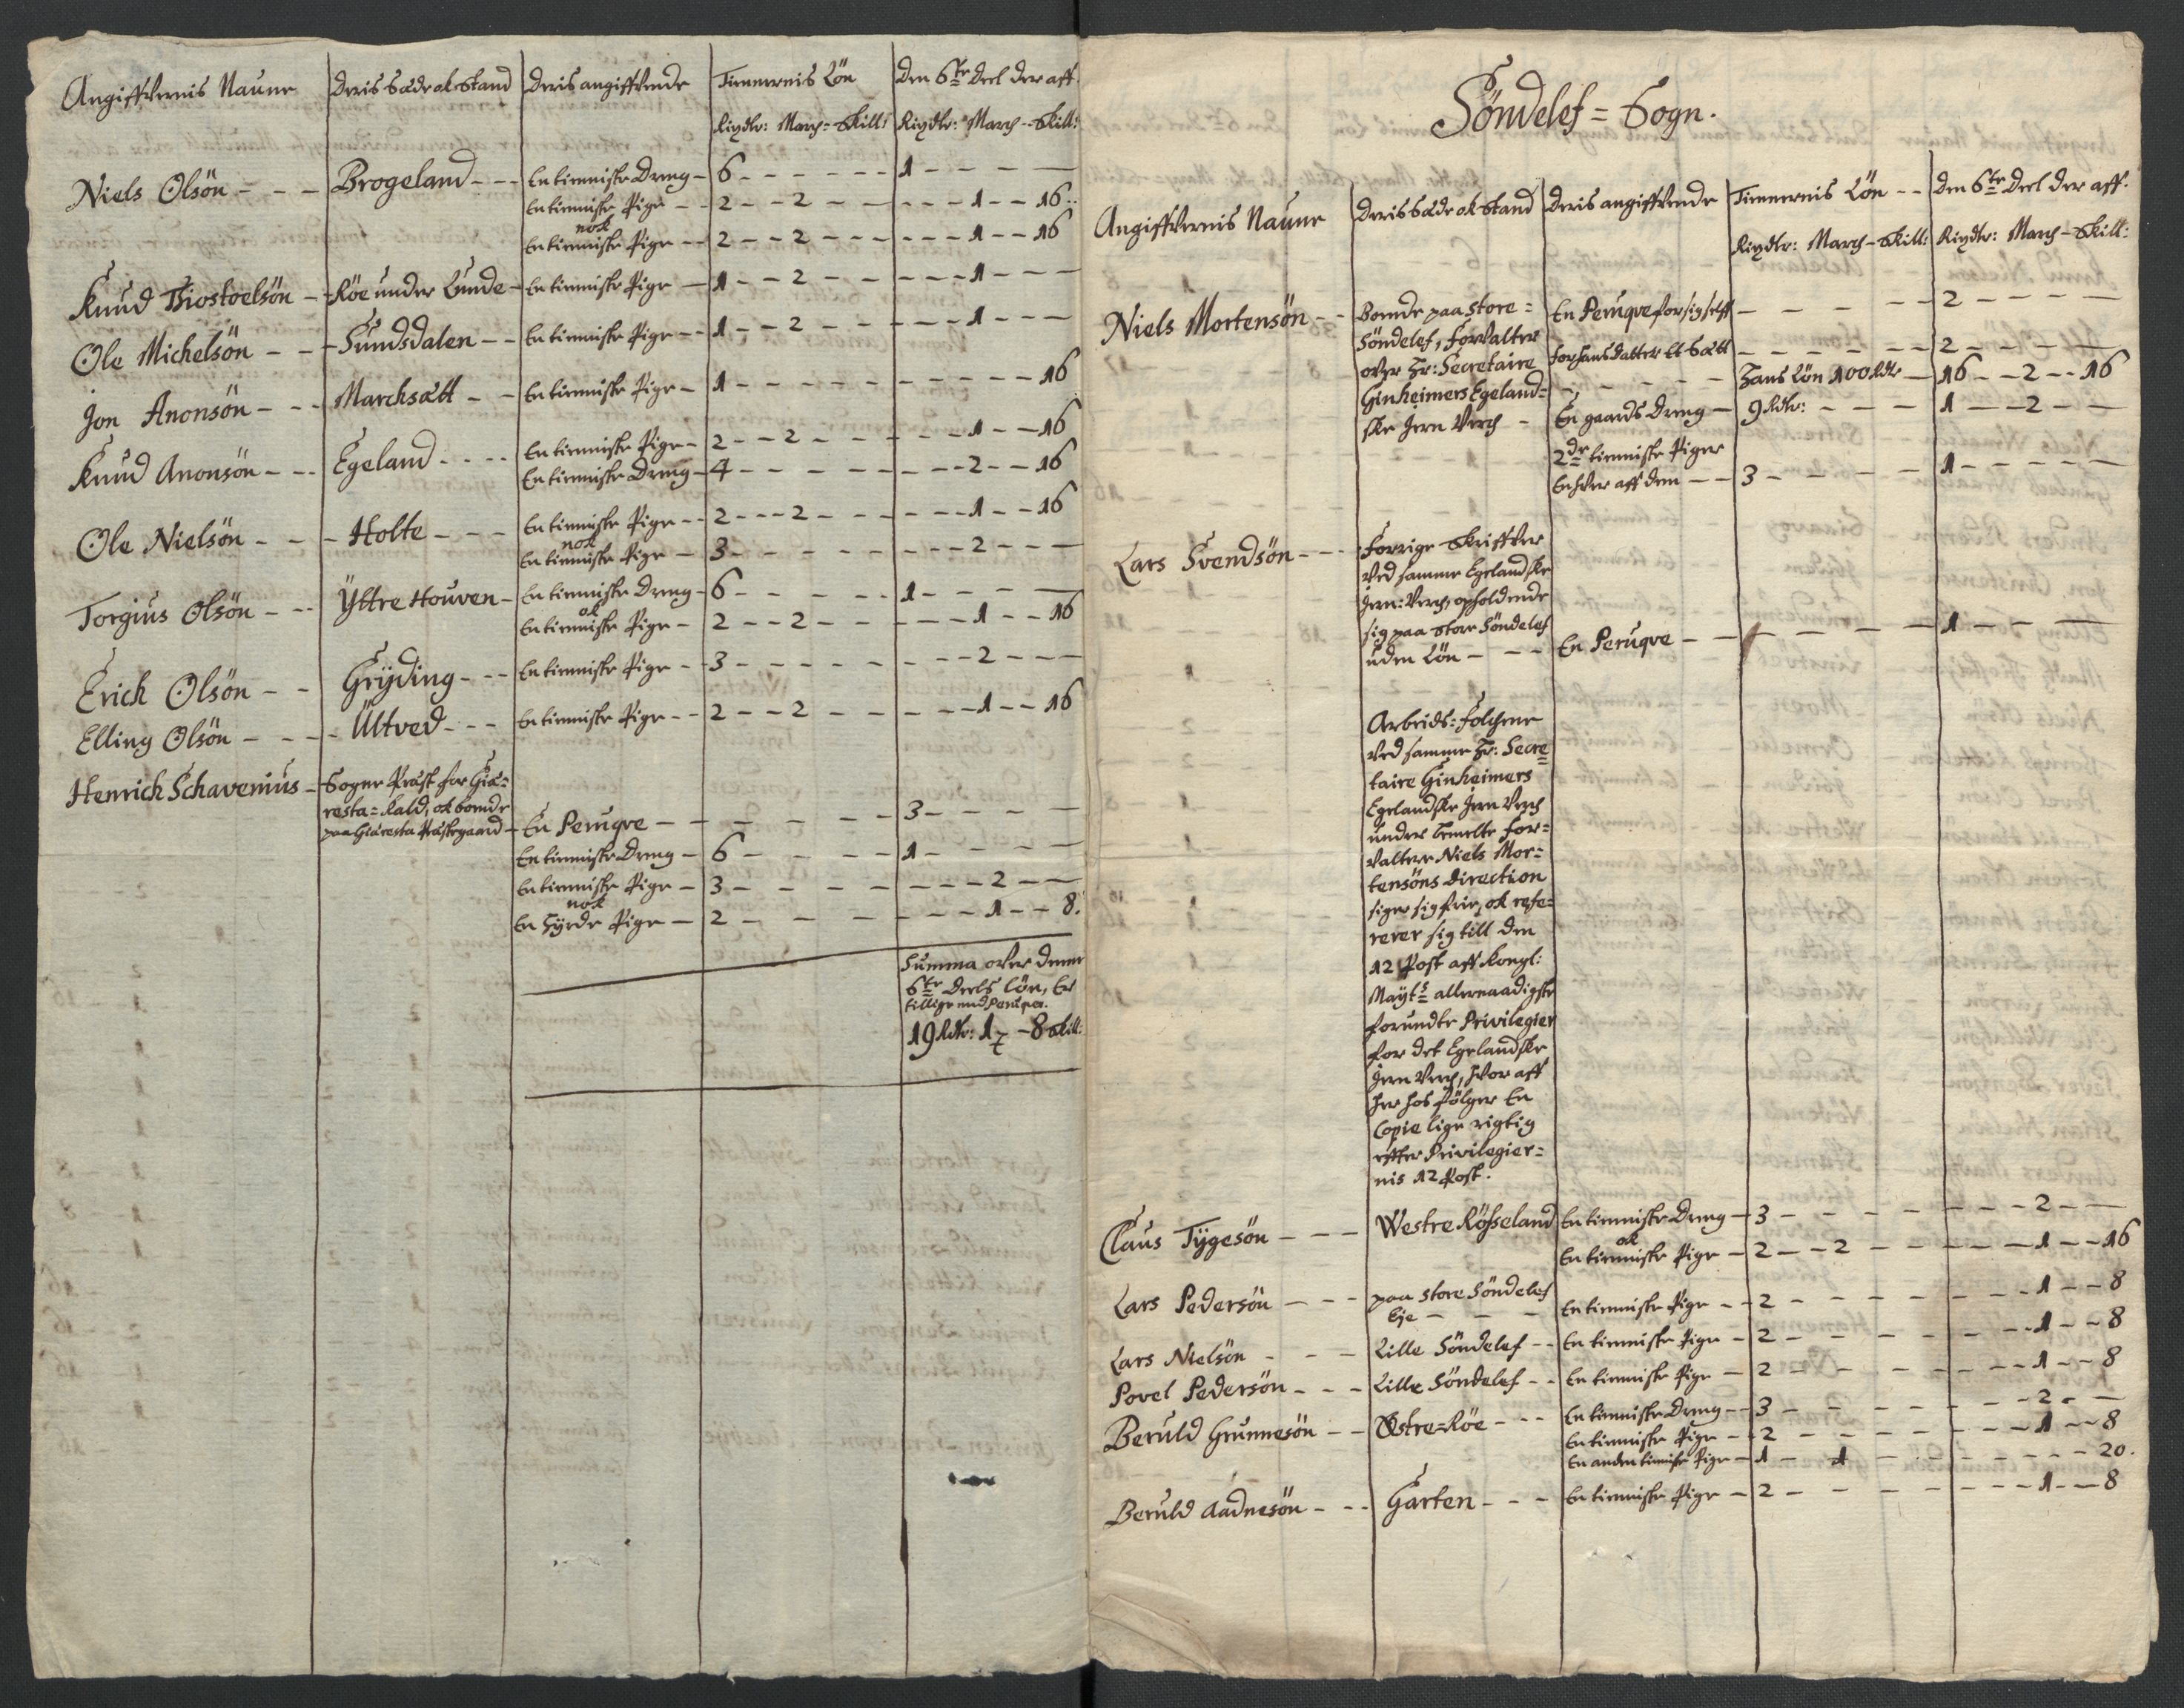 Angiffvernis Naune | Deris Sæde ok Stand | Deris angiffvende | Tienernis Lön | Den 6te Deel der aff.
Rixdlr: March - Skill: | Rixdlr: March - Skill:
Niels Olsön - - - | Brogeland - - - | En tienniste Dreng - | 6 - - - - - - | 1 - - - -
En tienniste Pige - - | 2 - - 2 - - - | - - - 1 - - 16
nok
En tienniste Pige - - | 2 - - 2 - - - | - - - 1 - - 16
Knud Tiostoelsön - - | Röe under Lunde - | En tienniste Pige - | 1 - - 2 - - - | - - - 1 - - -
Ole Michelsön - - - | Sundsdalen - - | En tienniste Pige - - | 1 - - 2 - - - | - - - 1 - - -
Jon Anonsön - - - | Marchsætt - - | En tienniste Pige - | 1 - - - - - | - - - - - 16
Knud Anonsön - - - | Egeland - - - - | En tienniste Pige - | 2 - - 2 - - - | - - - 1 - - 16
En tienniste Dreng - | 4 - - - - - | - - - 2 - - 16
Ole Nielsön - - - | Holte - - - - | En tienniste Pige - - | 2 - - - 2 - - - | - - - 1 - - 16
nok
En tienniste Pige - | 3 - - - - - | - - - 2 - - -
Torgius Olsön - - - | Ÿttre Houven - | En tienniste Dreng - | 6 - - - - - | 1 - - - -
ok
En tienniste Pige - | 2 - - 2 - - - | - - - 1 - - 16
Erich Olsön - - | Grÿding - - - | En tienniste Pige - - | 3 - - - - - | - - - 2 - - -
Elling Olsön - - - | Ultved - - - | En tienniste Pige - - | 2 - - 2 - - - | - - - 1 - - 16
Henrich Schavenius - | Sogne Præst for Giæ=
resta = Kald, ok boende
paa Giæresta Præstegaard - | En Peruqve - - | - - - - | 3 - - - -
En tienniste Dreng - | 6 - - - - | 1 - - - -
En tienniste Pige - | 3 - - - - | - - - 2 - -
nok
En Hÿrde Pige - | 2 - - - - | - - - 1 - - 8.
Summa over denne
6te Deels Lön, er
tillige med Peruqver.
19 Rdlr: 1 - 8 Skill:
Söndelef = Sogn.
Angiffvernis Naune | Deris Sæde ok Stand | Deris angiffvende | Tienernis Lön - - | Den 6te Deel der aff.
Rixdlr: March - Skill: | Rixdlr: March - Skill:
Niels Mortensön - - | Boende paa Store = | En Peruqve for sig selff | - - - - - | 2 - - - -
Söndelef, Forvalter | for hans datter et Sætt | - - - - - | 2 - - - -
over Hr: Secretaire | - - - - - | Hans Lön 100 Rdlr - | 16 - - 2 - - 16
Ginheimers Egeland=
ske Jern Verch - | En gaards Dreng - | 9 Rdlr: - - - | 1 - - 2 - -
2de tienniste Piger
En hver aff dem - - | 3 - - - - | 1 - - - -
Lars Svendsön - - - | Forrige Skriffver
ved samme Egelandske
Jern: Verch, opholdende
sig paa Store Söndelef
uden Lön - - - | En Peruqve - - | - - - - | 1 - - -
Arbeids = Folchene
ved samme Hr: Secre=
taire Ginheimers
Egelandske Jern Verch
under bemelte For=
valter Niels Mor=
tensöns direction
siger sig frie, ok refe=
rerer sig till den
12 Post aff Kongl:
Mayts allernaadigste
forundte Privilegier
for det Egelandske
Jern Verch, hvor aff
her hos fölger En
Copie lige rigtig
effter Privilegier=
nis 12 Post.
Claus Tÿgesön - - - | Westre Rösseland | En tienniste Dreng - | 3 - - - - - | - - - 2 - -
ok
En tienniste Pige - | 2 - - 2 - - - | - - - 1 - - 16
Lars Pedersön - - - | paa Store Söndelef
Eje - - - | En tienniste Pige - - | 2 - - - - - | - - - 1 - - 8
Lars Nielsön - - - | Lille Söndelef - - | En tienniste Pige - | 2 - - - - - | - - - 1 - - 8
Povel Pedersön - - - | Lille Söndelef - - | En tienniste Pige - | 2 - - - - - | - - - 1 - - 8
Beruld Grunnesön - - | Østre = Röe - - - | En tienniste Dreng - | 3 - - - - - | - - - 2 - -
En tienniste Pige - - | 2 - - - - - | - - - 1 - - 8
En anden tienniste Pige - | 1 - 1 - - - | - - - - - 20.
Beruld Aadnesön - - - | Garten - - - | En tienniste Pige - | 2 - - - - - | - - - 1 - - 8